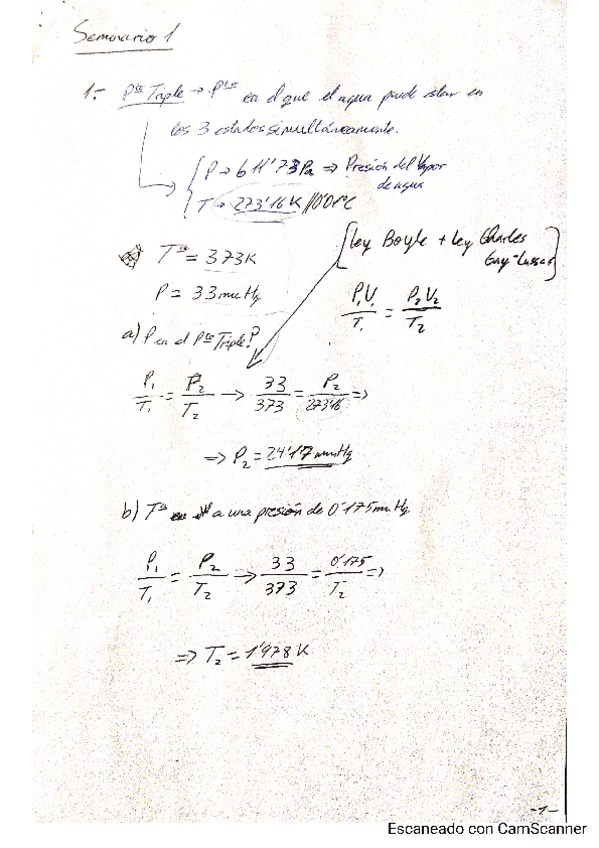 Seminario 1
1.- Pto Triple → Pto en el que el agua puede estar en
los 3 estados simultáneamente.
P → 611'73Pa ⇒ Presión del Vapor
de agua
T → 273'16K // 0'01ºC
[Ley Boyle + Ley Charles
Gay-Lussac]
Tª = 373K
P = 33mmHg
P₁V₁/T₁ = P₂V₂/T₂
a) P en el Pto Triple?
P₁/T₁ = P₂/T₂ → 33/373 = P₂/273'16 ⇒
⇒ P₂ = 24'17 mmHg
b) Tª a una presión de 0'175mmHg
P₁/T₁ = P₂/T₂ → 33/373 = 0'175/T₂ ⇒
⇒ T₂ = 1'978 K
-1-
Escaneado con CamScanner